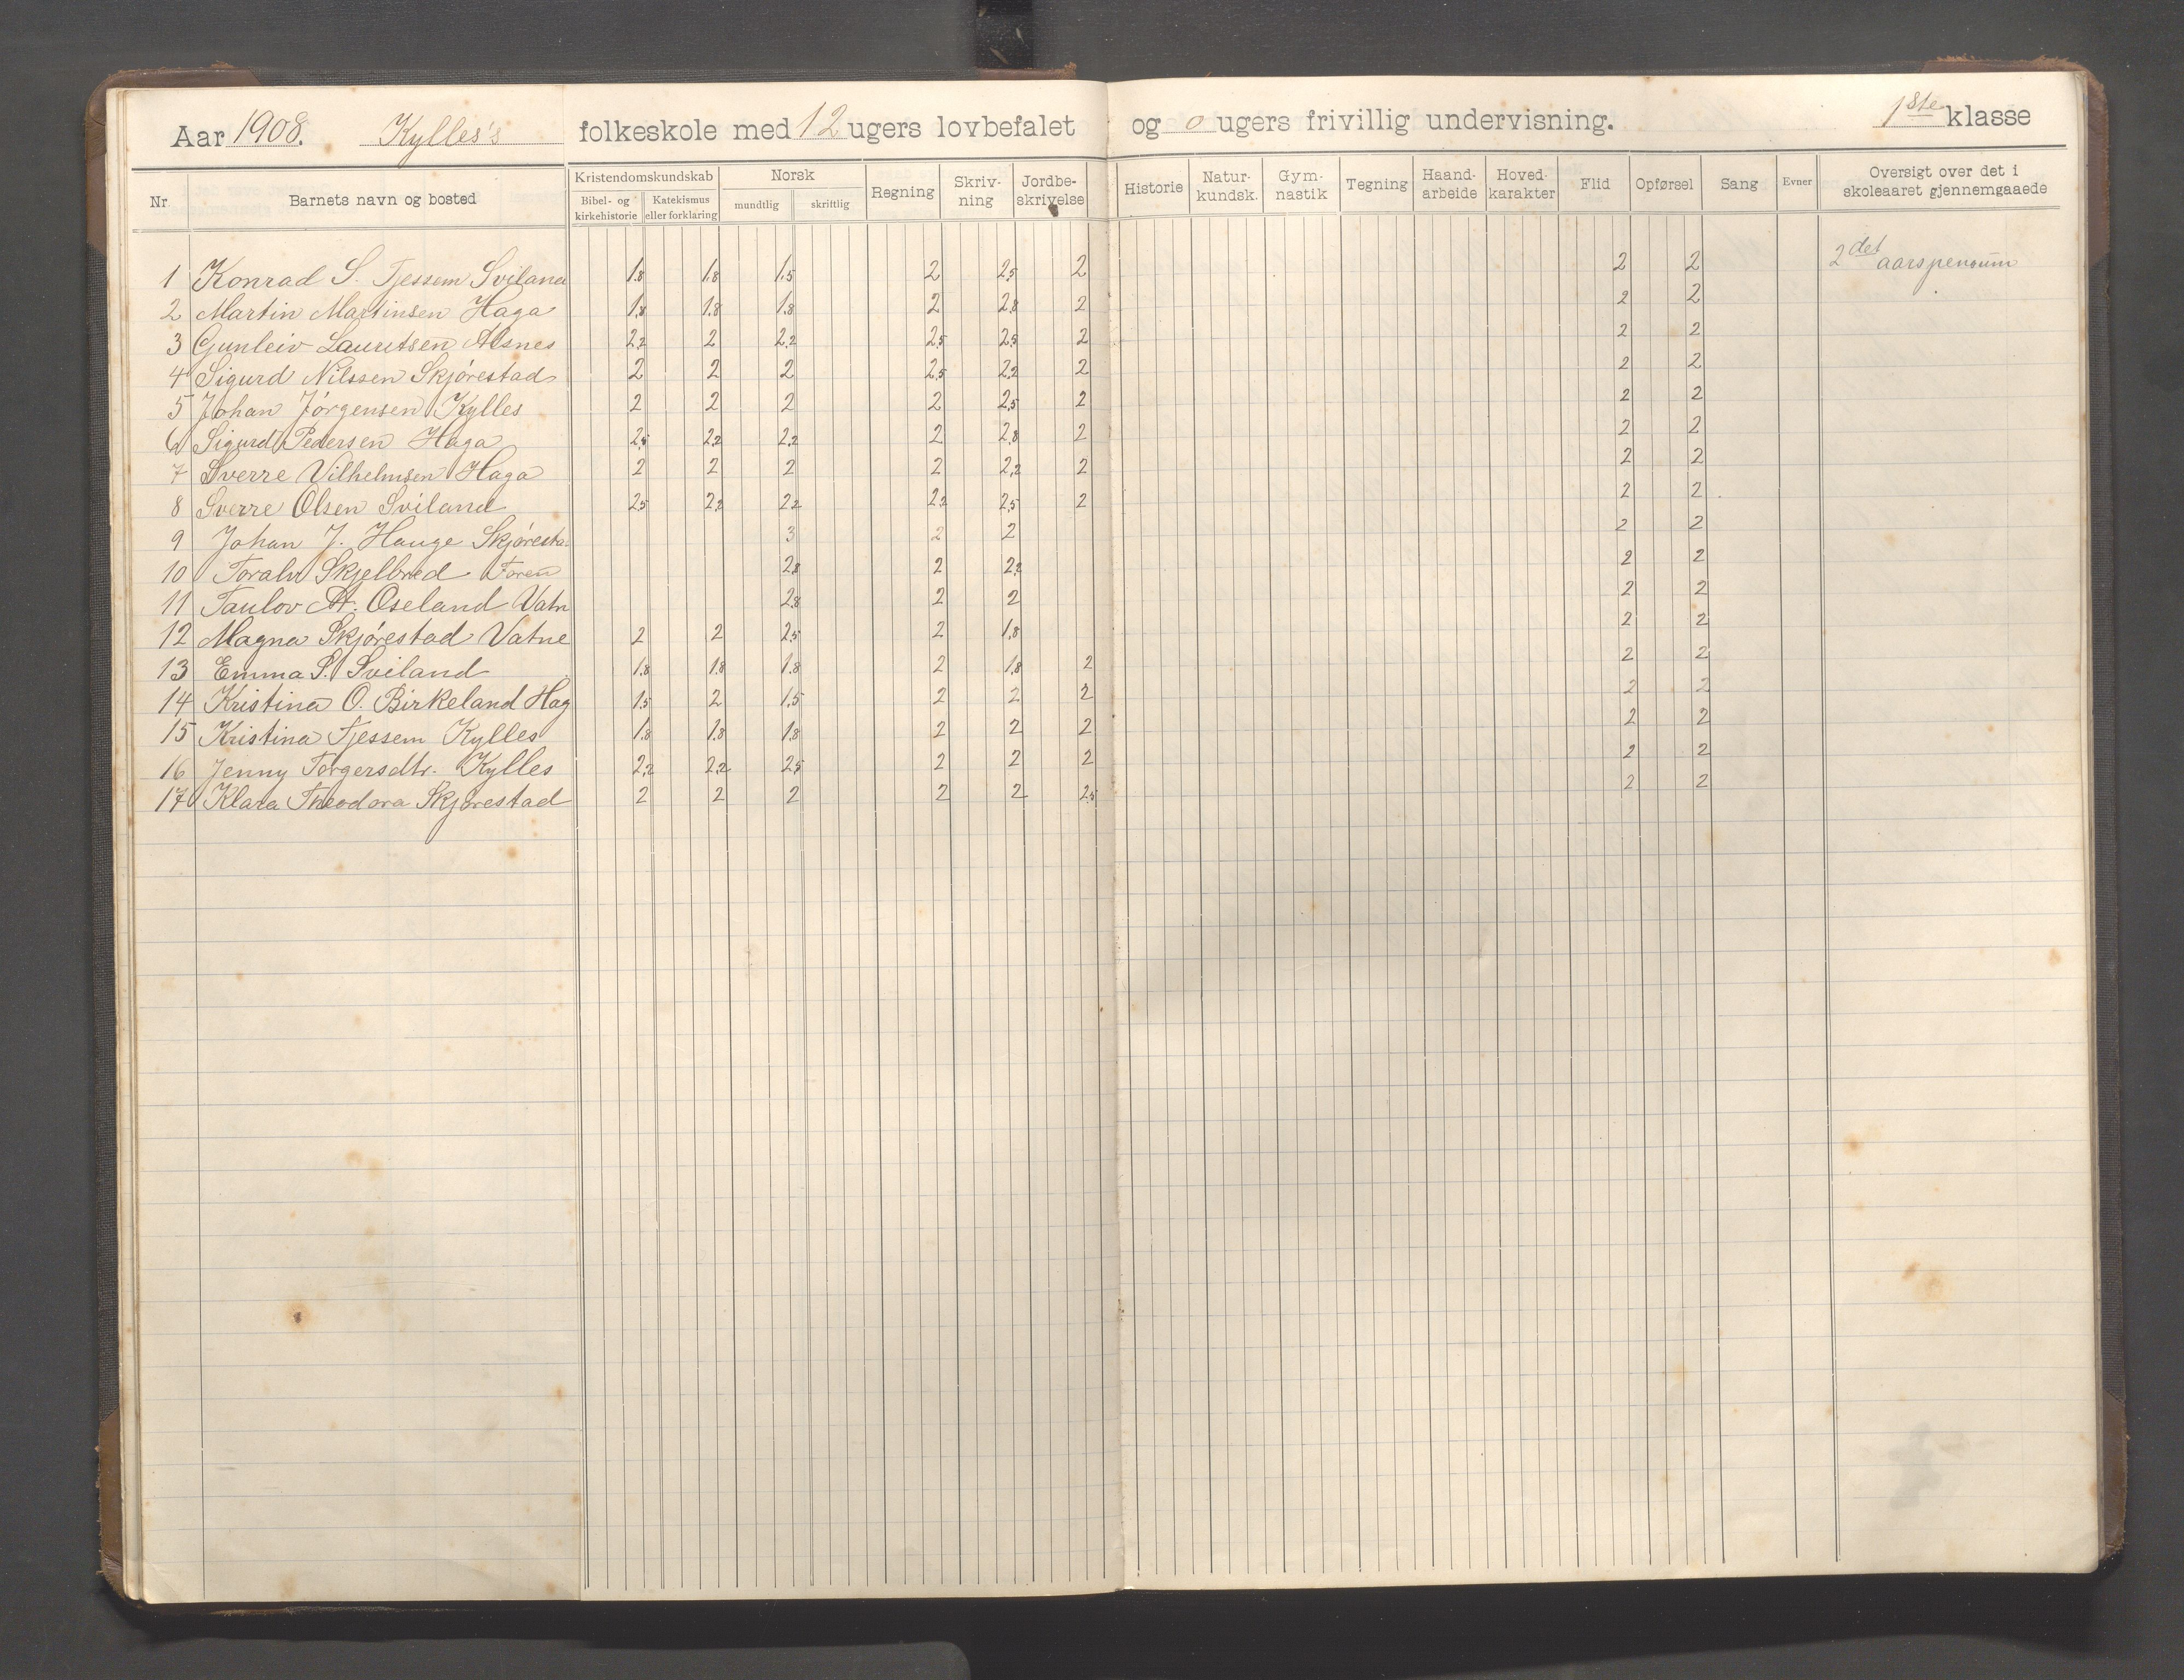 Aar 1908. Kylles's folkeskole med 12 ugers lovbefalet og 0 ugers frivillig undervisning. 1ste klasse
Nr Barnets navn og bosted Kristendomskundskab Bibel- og kirkehistorie Katekismus eller forklaring Norsk mundtlig skriftlig Regning Skriv-ning Jordbe-skrivelse Historie Natur-kundsk. Gym-nastik Tegning Haand-arbeide Hoved-karakter Flid Opførsel Sang Evner Oversigt over det i skoleaaret gjennemgaaede
1 Konrad S. Tjessem Sviland 1.8 1.8 1.5 2 2,5 2 2 2 2det aarspensum
2 Martin Martinsen Haga 1,8 1.8 1.8 2 2,8 2 2 2
3 Gunleiv Lauritsen Alsnes 2,2 2 2,2 2,5 2,5 2 2 2
4 Sigurd Nilssen Skjörestad 2 2 2 2,5 2,2 2 2 2
5 Johan Jörgensen Kylles 2 2 2 2 2,5 2 2 2
6 Sigurd Pedersen Haga 2,5 2,2 2,2 2 2,8 2 2 2
7 Sverre Vilhelmsen Haga 2 2 2 2 2,2 2 2 2
8 Sverre Olsen Sviland 2,5 2,2 2,2 2,2 2,5 2 2 2
9 Johan J. Hauge Skjöresta 3 2 2 2 2
10 Toralv Skjelbred Foren 2,8 2 2,2 2 2
11 Taulov Oseland Vatn 2,8 2 2 2 2
12 Magna Skjörestad Vatne 2 2 2,5 2 1,8 2 2
13 Emma S. Sviland 1.8 1.8 1.8 2 1,8 2 2 2
14 Kristina O. Birkeland Hag 1,5 2 1,5 2 2 2 2 2
15 Kristina Tjessem Kylles 1.8 1.8 1.8 2 2 2 2 2
16 Jenny Torgersdtr. Kylles 2,2 2,2 2,5 2 2 2 2 2
17 Klara Theodora Skjörestad 2 2 2 2 2 2,5 2 2